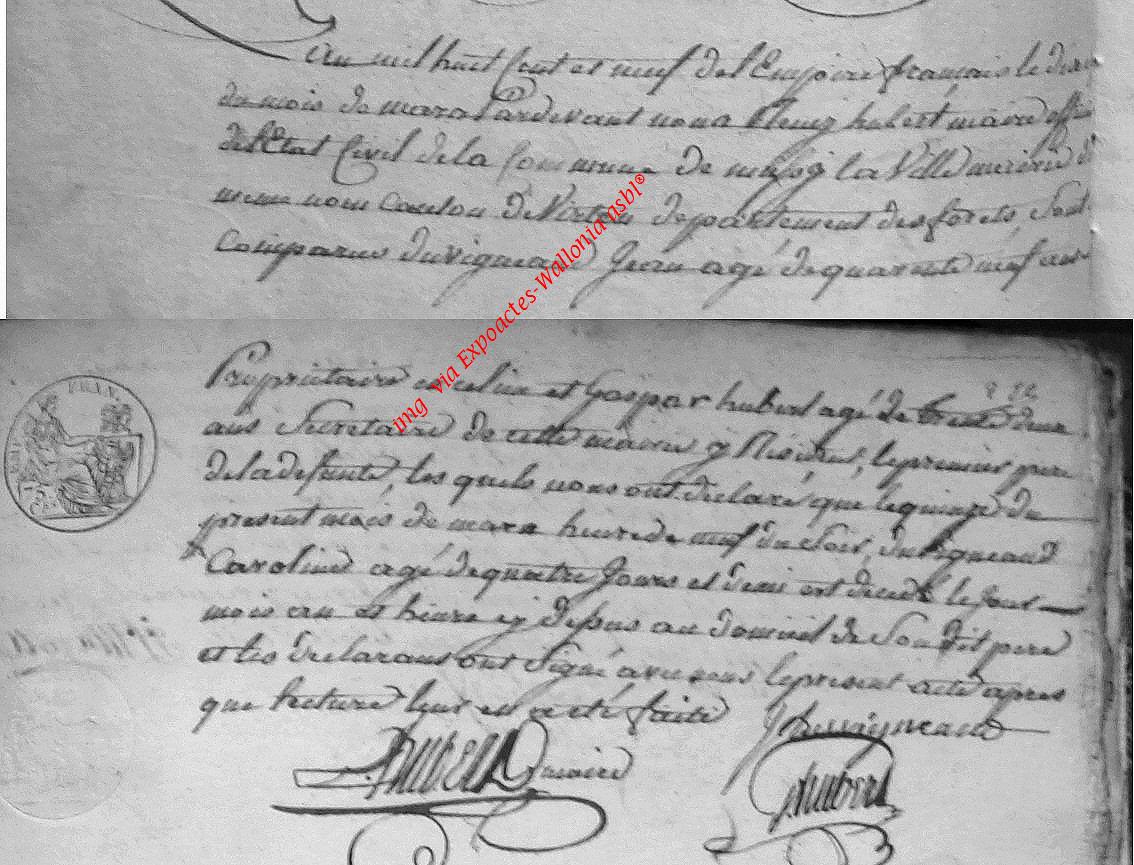 an mil huit Cent et neuf de l'Empire français le
du mois de mars Pardevant nous hubert maire
de l'Etat Civil de la Commune de la Ville mairie
meme nom canton de Virton departement des forets Sont
Comparus Duvigneaud Jean agé de quarante neuf ans
Propriétaire en ce lieu et Gaspar hubert agé de trente deux
ans Secretaire de cette mairie y Résident, le premier pere
de la defunte, les quels nous ont declaré que le quinze du
present mois de mars heure de neuf du Soir, Duvigneaud
Caroline agé de quatre Jours et demi est décedé le Jour
mois an et heure cy depus au domicil de Son dit pere
et les declarans ont Signé avec nous le present acte apres
que lecture leur en a eté faite J Duvigneaud
hubert maire
Ghubert
img via Expoactes-Wallonia asbl®